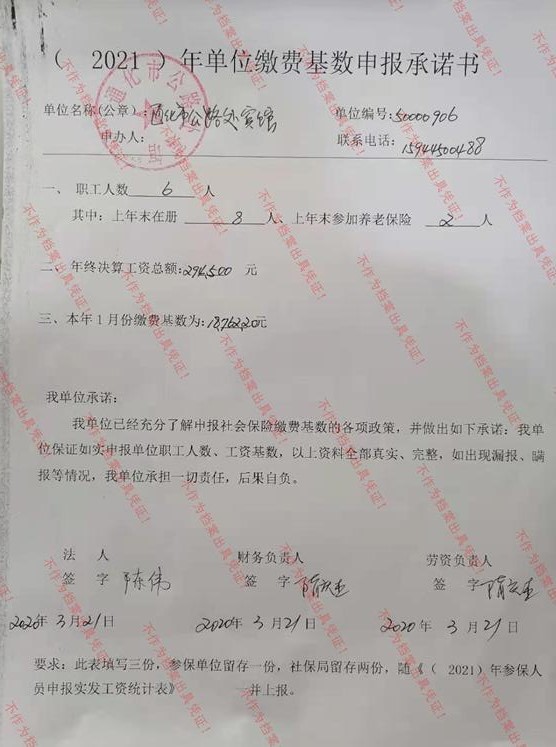 （ 2021 ）年单位缴费基数申报承诺书
单位名称(公章)：通化市公路处宾馆 单位编号:50000906
申办人： 联系电话:15944500488
一、 职工人数 6 人
其中：上年末在册 8 人、上年末参加养老保险 2 人
二、年终决算工资总额:294,500 元
三、本年1月份缴费基数为:18,762.20元
我单位承诺：
我单位已经充分了解申报社会保险缴费基数的各项政策，并做出如下承诺：我单
位保证如实申报单位职工人数、工资基数，以上资料全部真实、完整，如出现漏报、瞒
报等情况，我单位承担一切责任，后果自负。
法 人 财务负责人 劳资负责人
签 字 签 字 签 字
2020年 3月21日 2020年 3月21日 2020年 3月21日
要求：此表填写三份，参保单位留存一份，社保局留存两份，随《（ 2021）年参保人
员申报实发工资统计表》 一并上报。
不作为档案出具凭证！